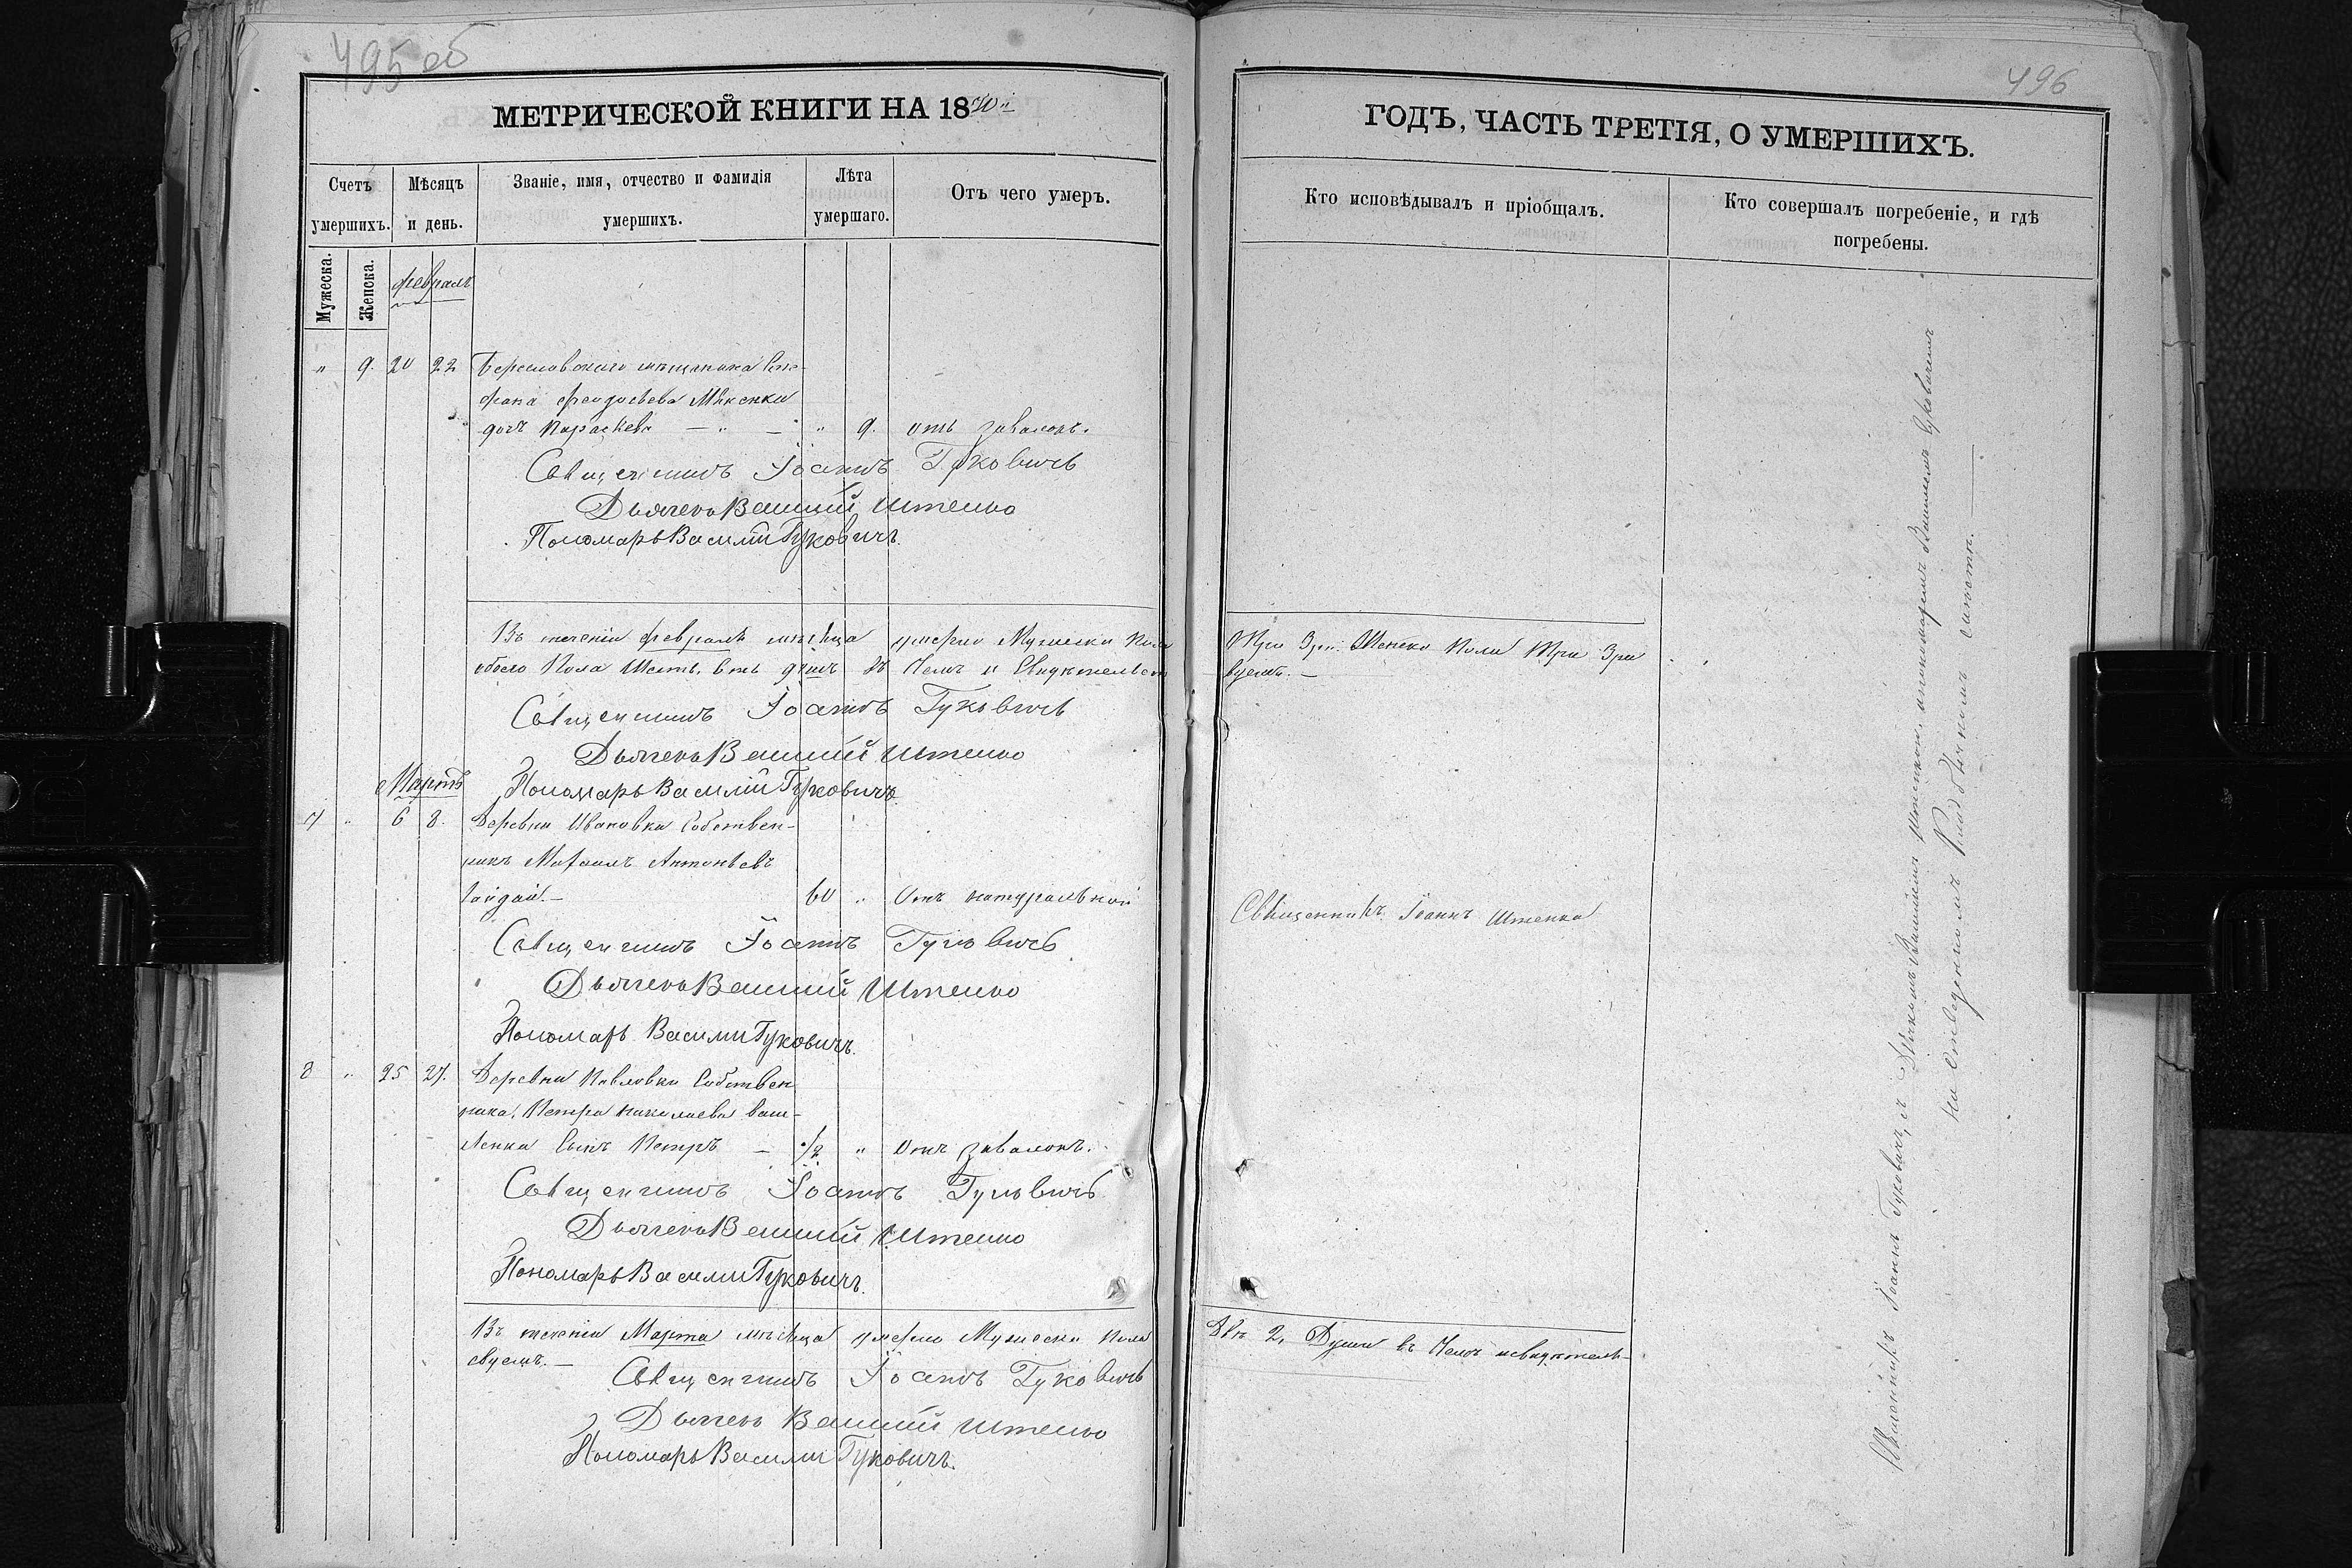 495 об
МЕТРИЧЕСКОЙ КНИГИ НА 1870
Счетъ умершихъ.
Мѣсяцъ и день.
Званіе, имя, отчество и фамилія умершихъ.
Лѣта умершаго.
Отъ чего умеръ.
Мужеска.
Женска.
Февраль
" 9. 20 22 Бериславскаго мѣщанина Сте-
фана Феодосьева
дочь Параскева — " — " 9. отъ завалокъ.
Священникъ Іоаннъ Гуковичъ
Дьячекъ Василій Штенко
Пономарь Василій Гуковичъ.
Въ теченіи февраля мѣсяца умерло Мужеска Пола
обоего Пола Шесть, 6ть душъ въ Чемъ и Свидѣтельст
Священникъ Іоаннъ Гуковичъ
Дьячекъ Василій Штенко
Пономарь Василій Гуковичъ.
Мартъ
7 " 6 8. Деревни Ивановки Собствен-
никъ Михаилъ Антоньевъ
Гайдай.— 60 " Отъ натуральной
Священникъ Іоаннъ Гуковичъ
Дьячекъ Василій Штенко
Пономарь Василій Гуковичъ.
8 " 25 27. Деревни Павловки Собствен
ника, Петра Николаева Ваш-
ленка Сынъ Петръ — 1/2 " Отъ завалокъ.
Священникъ Іоаннъ Гуковичъ
Дьячекъ Василій Штенко
Пономарь Василій Гуковичъ.
Въ теченіи Марта мѣсяца умерло Мужеска Пола
ствуемъ.—
Священникъ Іоаннъ Гуковичъ
Дьячекъ Василій Штенко
Пономарь Василій Гуковичъ.
496
ГОДЪ, ЧАСТЬ ТРЕТІЯ, О УМЕРШИХЪ.
Кто исповѣдывалъ и пріобщалъ.
Кто совершалъ погребеніе, и гдѣ погребены.
Три 3ри Женска Пола Три 3ри
вуемъ.—
Священникъ Іоаннъ Штенко
Двѣ 2, Души въ Чемъ и свидѣтель-
Священникъ Іоаннъ Гуковичъ, съ Дьячкомъ Василіемъ Штенкомъ, и пономаремъ Василіемъ Гуковичемъ
На Отведенномъ Кладбищномъ мѣстѣ.